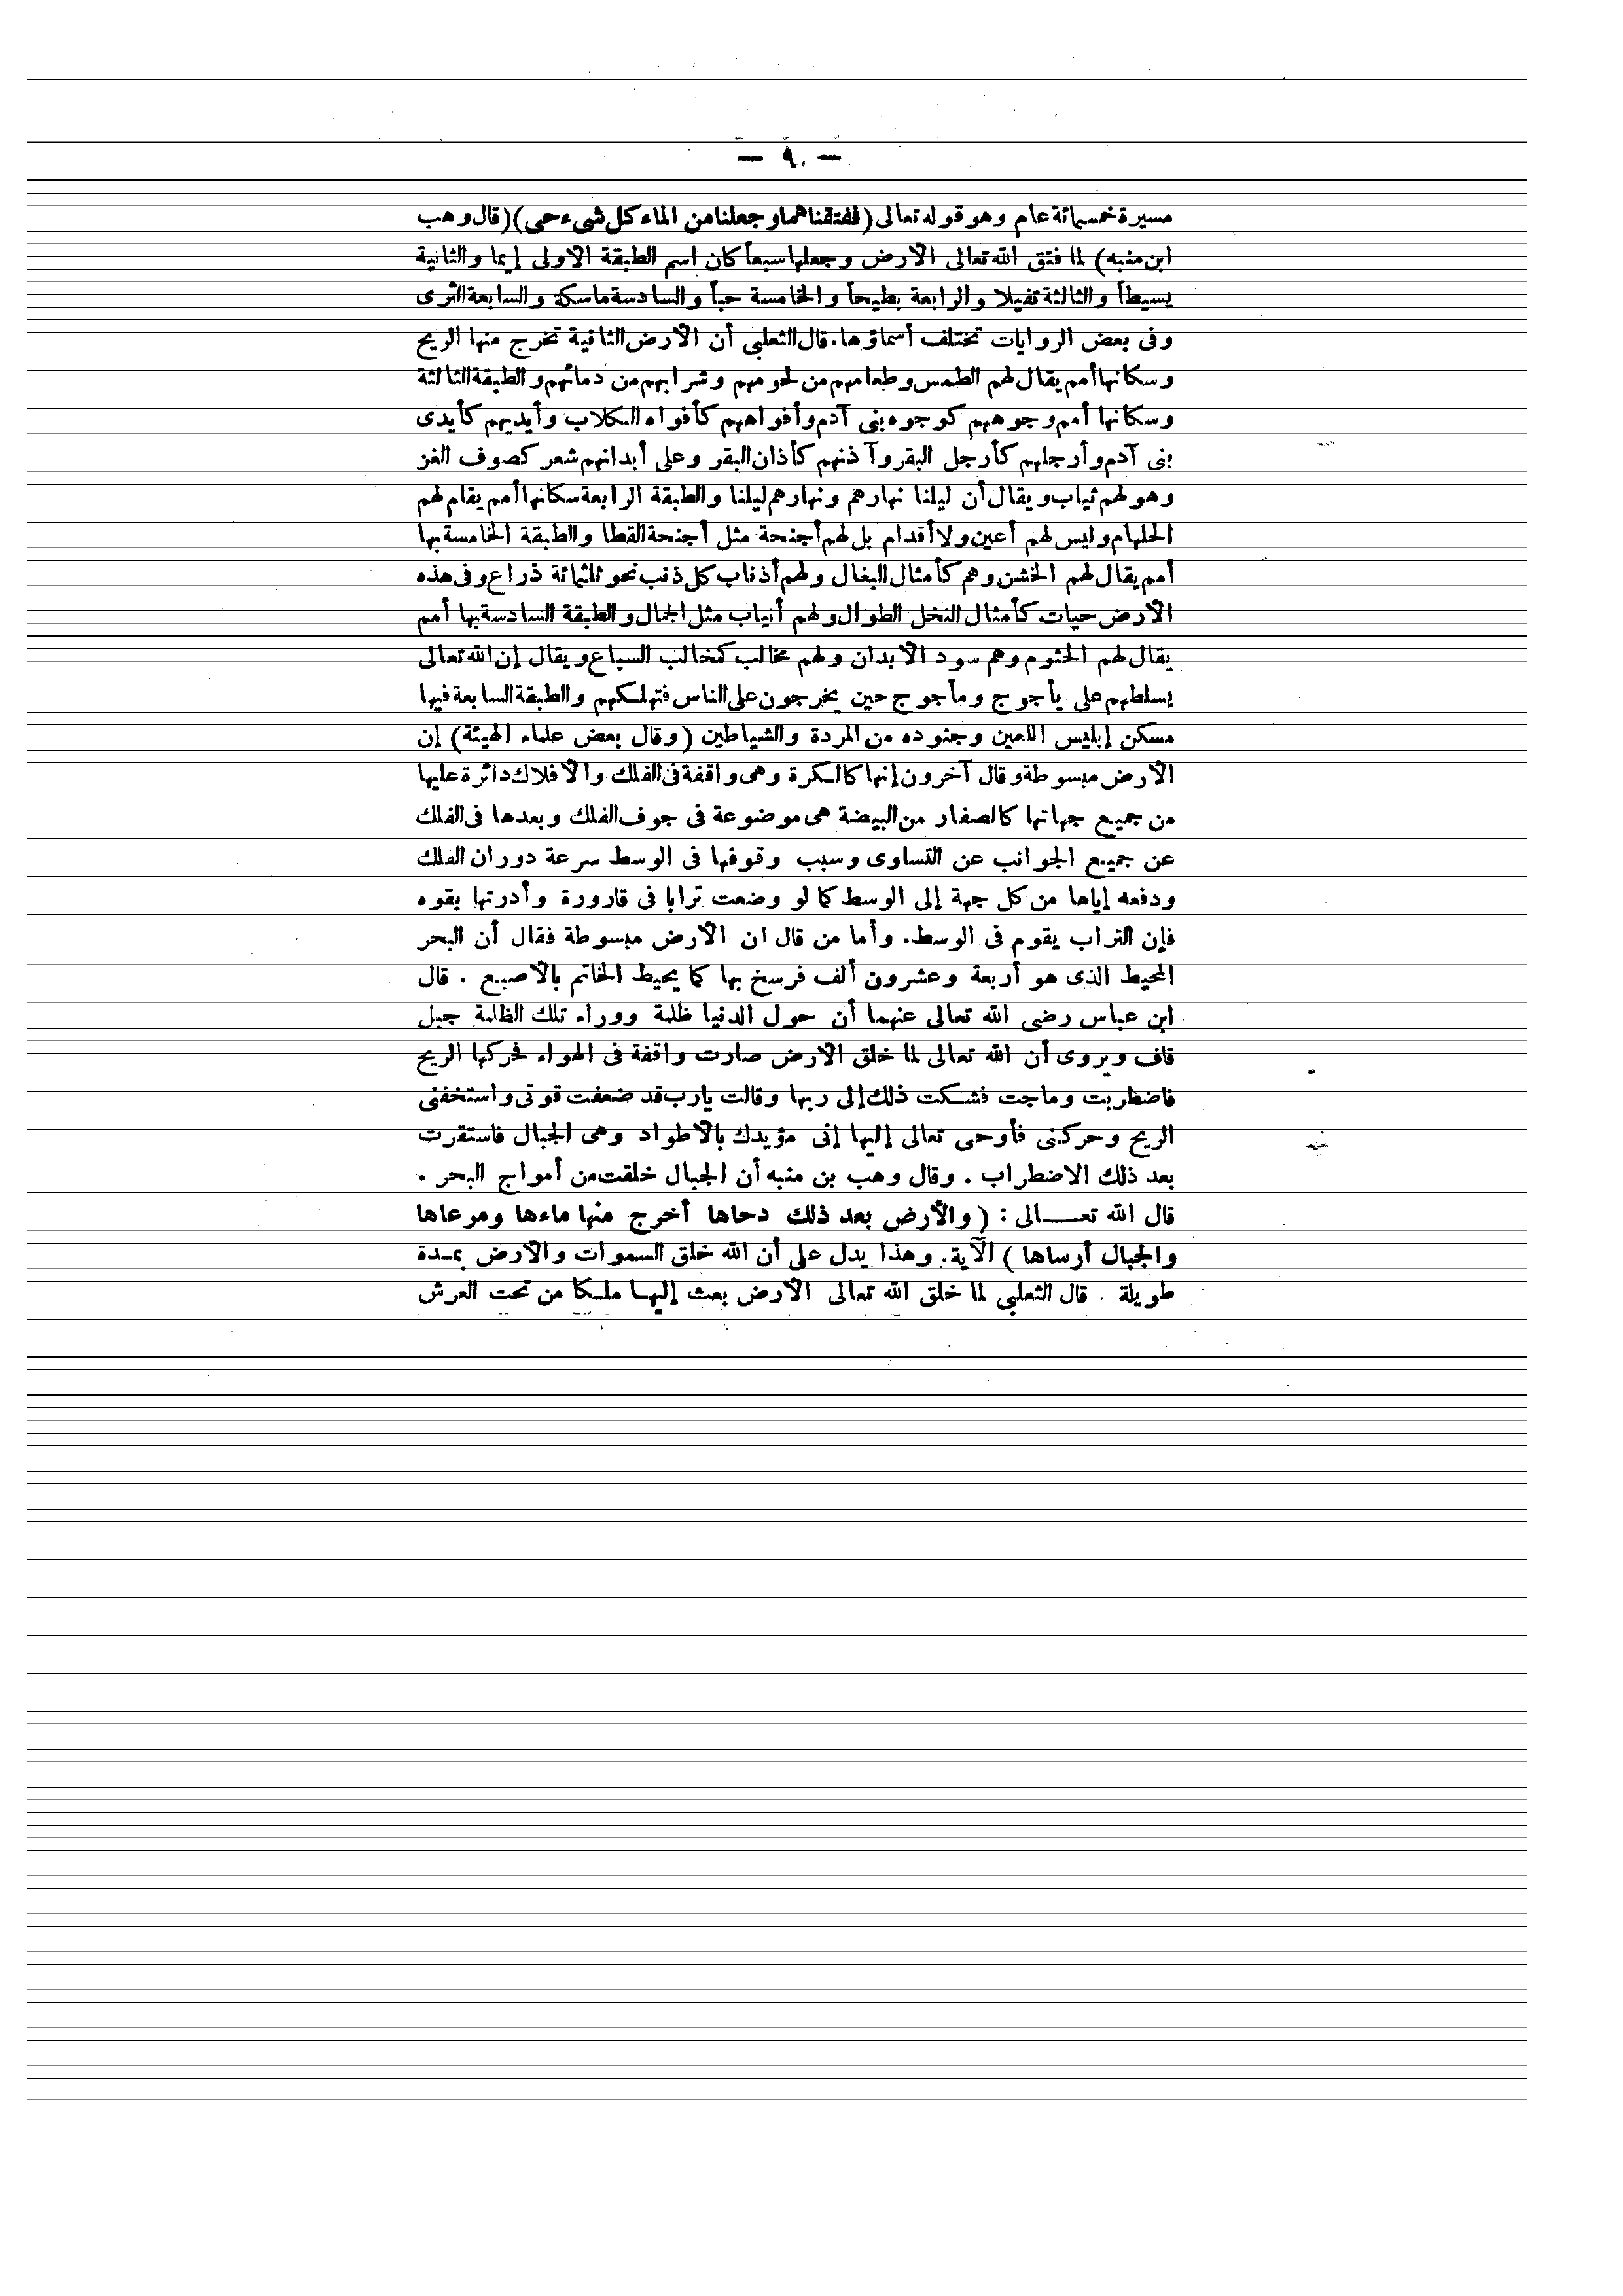 — ٩ —
مسيرة خمسمائة عام وهو قوله تعالى (ففتقناهما وجعلنا من الماء كل شىء حى) (قال وهب
ابن منبه) لما فتق الله تعالى الارض وجعلها سبعاً كان اسم الطبقة الاولى إيما والثانية
يسيطاً والثالثة تفيلا والرابعة بطيحاً والخامسة حباً والسادسة ماسكة والسابعة الثرى
وفى بعض الروايات تختلف أسماؤها. قال الثعلبى أن الارض الثانية تخرج منها الريح
وسكانها أمم يقال لهم الطمس وطعامهم من لحومهم وشرابهم من دمائهم والطبقة الثالثة
وسكانها أمم وجوههم كوجوه بنى آدم وأفواههم كأفواه الكلاب وأيديهم كأيدى
بنى آدم وأرجلهم كأرجل البقر وآذنهم كأذان البقر وعلى أبدانهم شعر كصوف الغز
وهو لهم ثياب ويقال أن ليلنا نهارهم ونهارهم ليلنا والطبقة الرابعة سكانها أمم يقام لهم
الحلهام وليس لهم أعين ولا أقدام بل لهم أجنحة مثل أجنحة القطا والطبقة الخامسة بها
أمم يقال لهم الخشن وهم كأمثال البغال ولهم أذناب كل ذنب نحو ثلثمائة ذراع وفى هذه
الارض حيات كأمثال النخل الطوال ولهم أنياب مثل الجمال والطبقة السادسة بها أمم
يقال لهم الحثوم وهم سود الابدان ولهم مخالب كمخالب السباع ويقال إن الله تعالى
يسلطهم على يأجوج ومأجوج حين يخرجون على الناس فتهلكهم والطبقة السابعة فيها
مسكن إبليس اللعين وجنوده من المردة والشياطين (وقال بعض علماء الهيئة) إن
الارض مبسوطة وقال آخرون إنها كالكرة وهى واقفة فى الفلك والافلاك دائرة عليها
من جميع جهاتها كالصفار من البيضة هى موضوعة فى جوف الفلك وبعدها فى الفلك
عن جميع الجوانب عن التساوى وسبب وقوفها فى الوسط سرعة دوران الفلك
ودفعه إياها من كل جهة إلى الوسط كما لو وضعت ترابا فى قارورة وأدرتها بقوه
فإن التراب يقوم فى الوسط. وأما من قال ان الارض مبسوطة فقال أن البحر
المحيط الذى هو أربعة وعشرون ألف فرسخ بها كما يحيط الخاتم بالاصبع . قال
ابن عباس رضى الله تعالى عنهما أن حول الدنيا ظلمة ووراء تلك الظلمة جبل
قاف ويروى أن الله تعالى لما خلق الارض صارت واقفة فى الهواء فحركها الريح
فاضطربت وماجت فشكت ذلك إلى ربها وقالت يارب قد ضعفت قوتى واستخفنى
الريح وحركنى فأوحى تعالى إليها إنى مؤيدك بالاطواد وهى الجبال فاستقرت
بعد ذلك الاضطراب . وقال وهب بن منبه أن الجبال خلقت من أمواج البحر .
قال الله تعــالى : (والأرض بعد ذلك دحاها أخرج منها ماءها ومرعاها
والجبال أرساها) الآية. وهذا يدل على أن الله خلق السموات والارض بمدة
طويلة . قال الثعلبي لما خلق الله تعالى الارض بعث إليها ملكا من تحت العرش